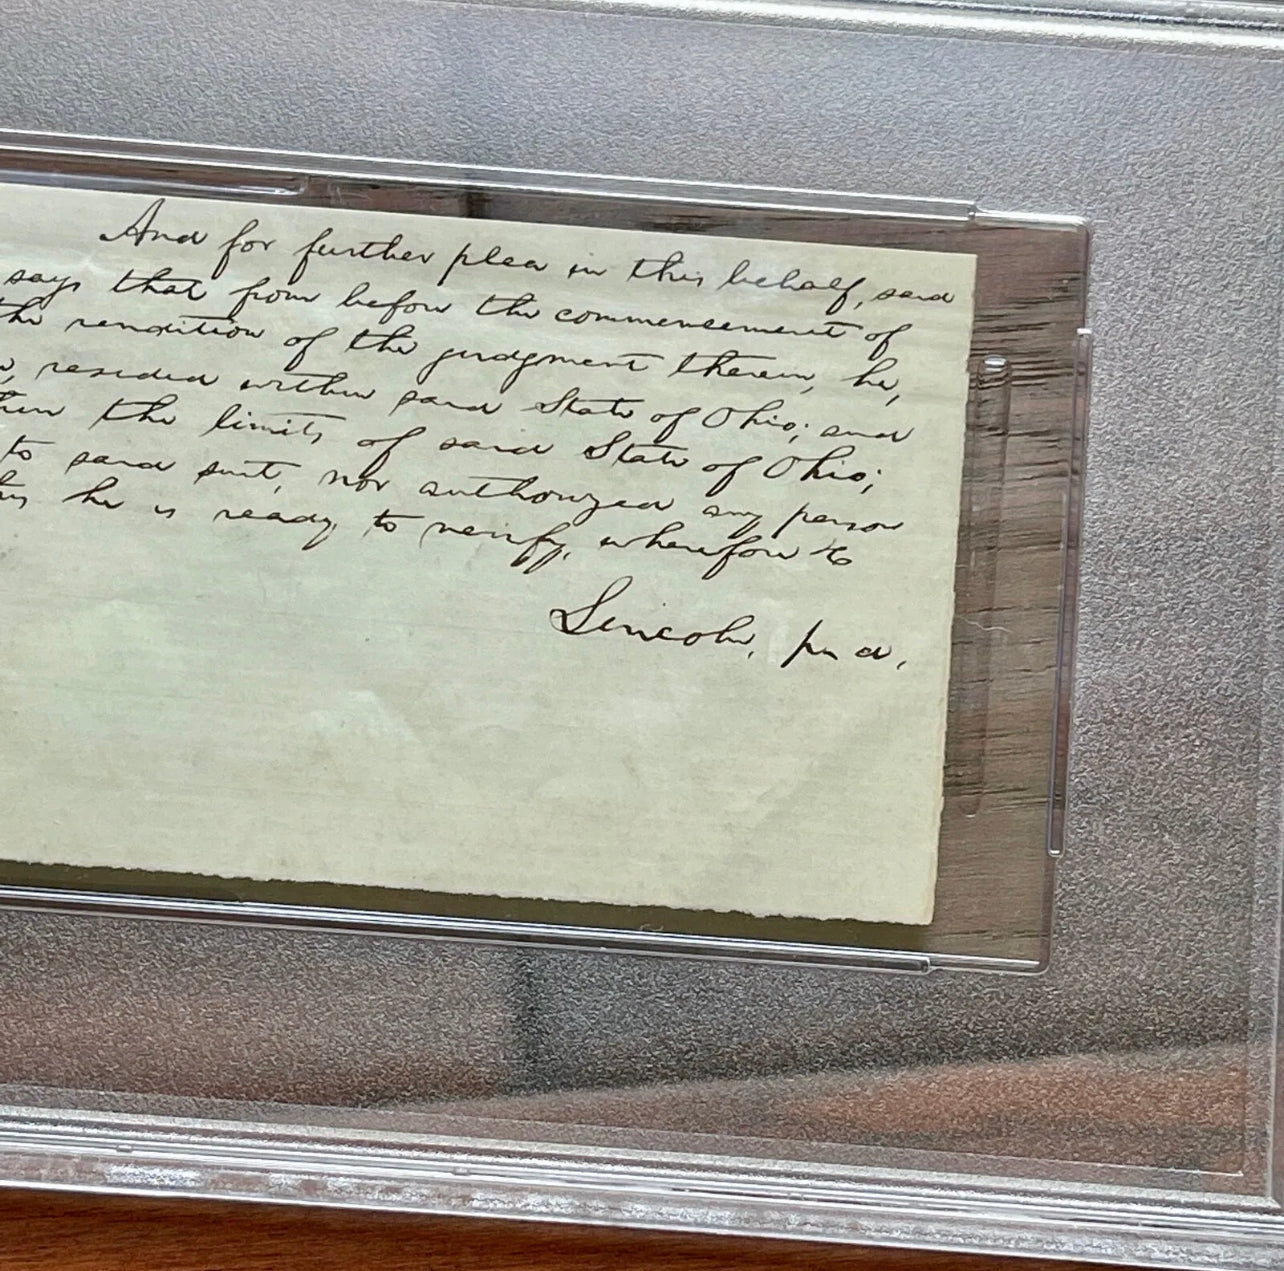 And for further plea in this behalf, said
says that from before the commencement of
the rendition of the judgment therein, he,
resided within said State of Ohio; and
the limits of said State of Ohio;
to said suit, nor authorized any person
he is ready to verify, wherefore &c
Lincoln, p. d.